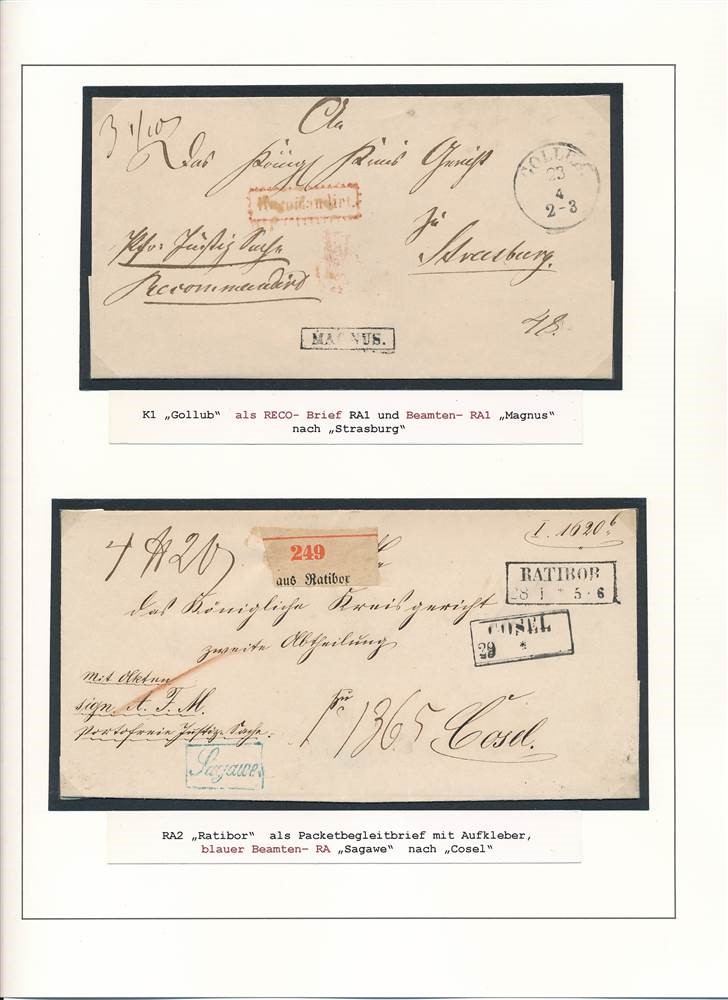 An
Das Königl Kreis Gericht
GOLLUB
23
4
2-3
Recomandirt.
zu
Pfr: Justiz Sache
Strasburg.
Recommandird
48.
MAGNUS.
K1 „Gollub“ als RECO- Brief RA1 und Beamten- RA1 „Magnus“
nach „Strasburg“
I. 1620
249
aus Ratibor
RATIBOR
28 1 * 5-6
das Königliche Kreisgericht
COSEL
29 *
zweite Abtheilung
mit Akten
sign. A. T. M.
zu
1365
Cosel.
Portofreie Justiz-Sache.
Sagawe
RA2 „Ratibor“ als Packetbegleitbrief mit Aufkleber,
blauer Beamten- RA „Sagawe“ nach „Cosel“